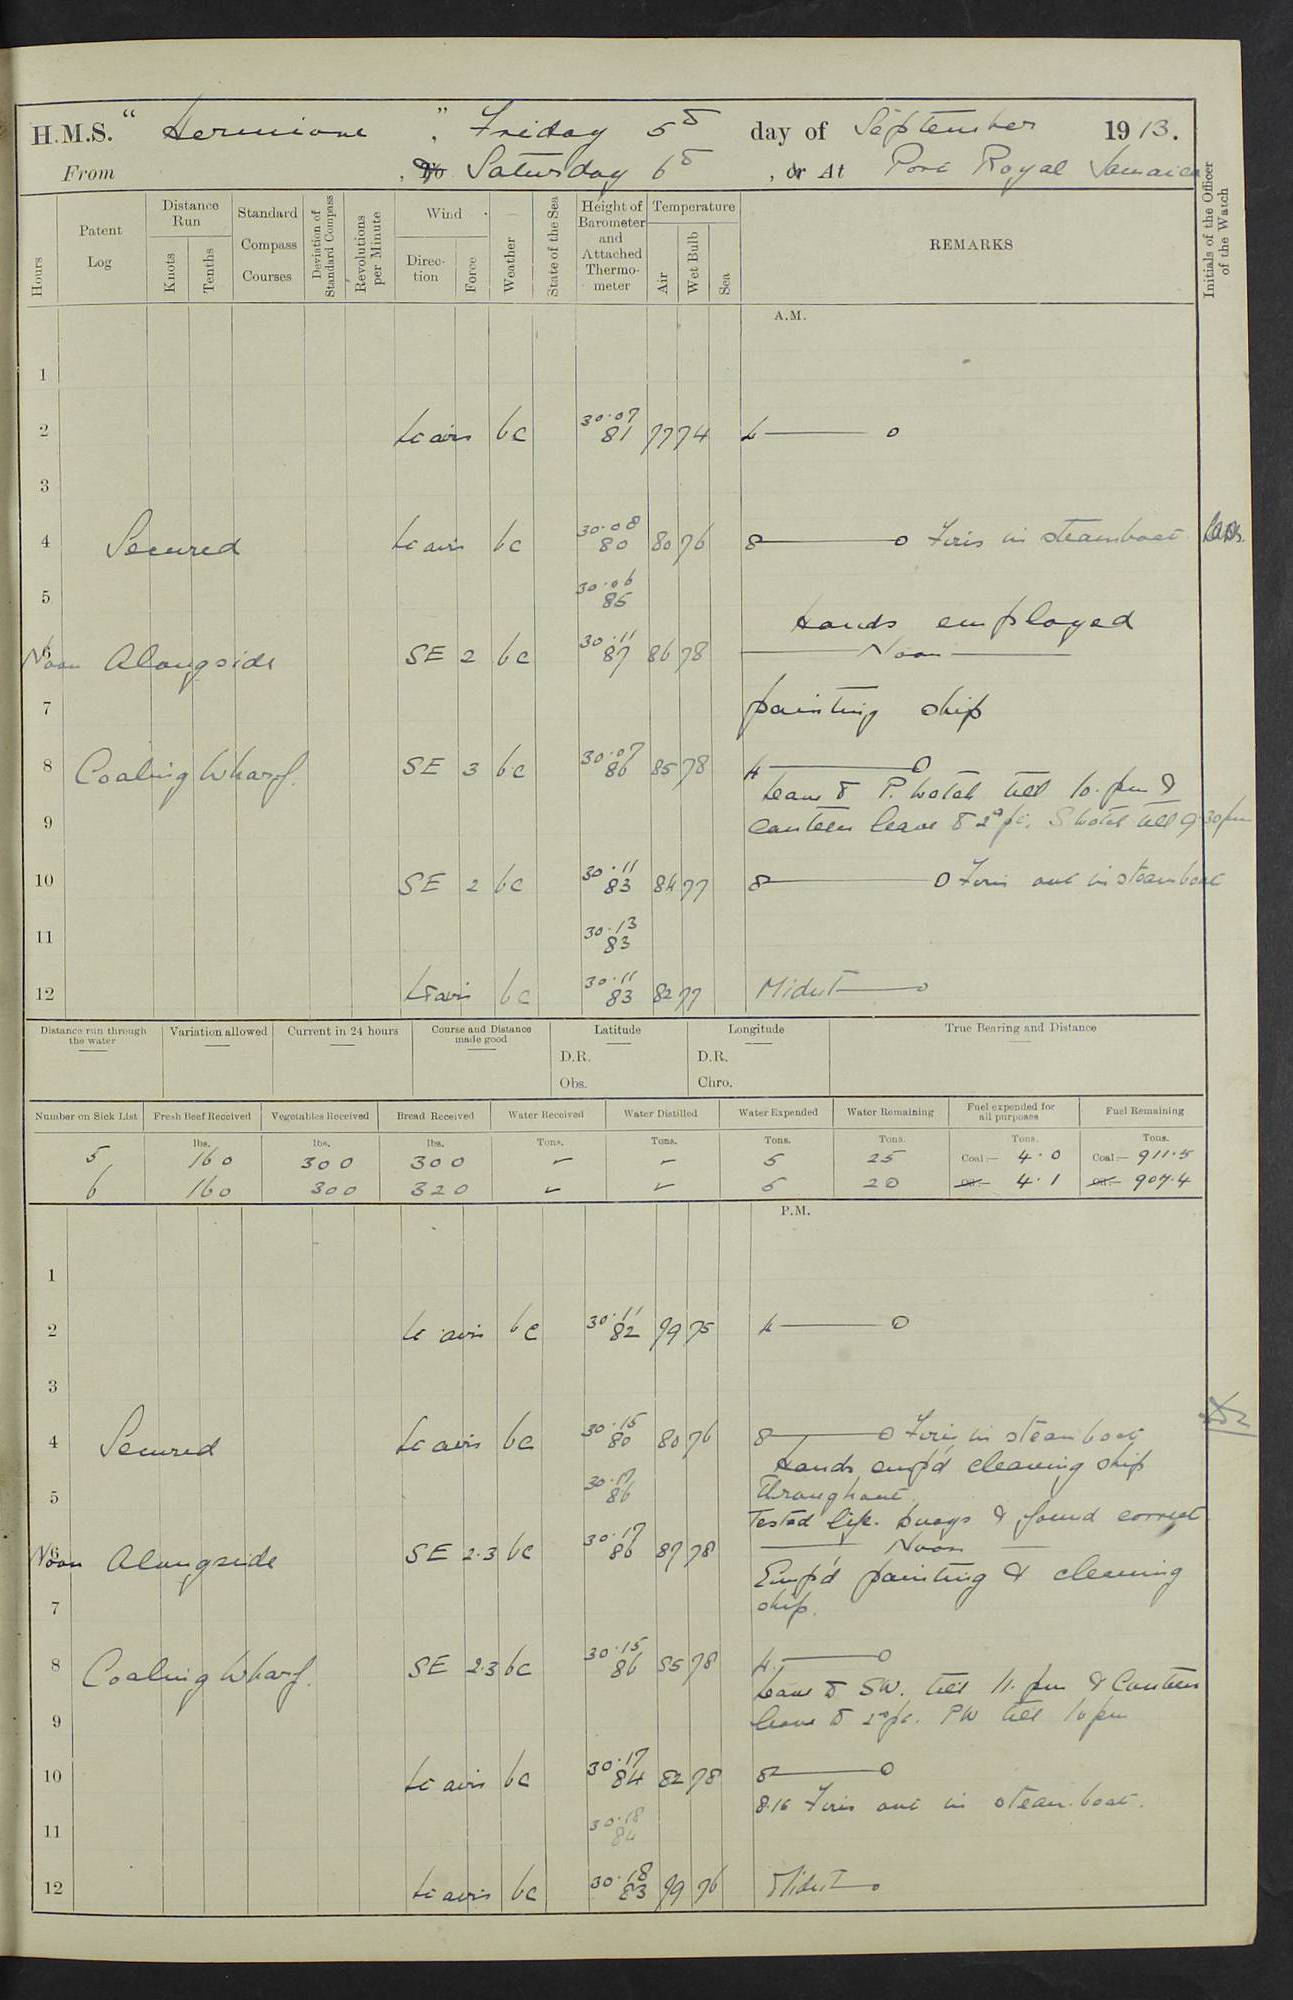 H.M.S. "Hermione", Friday 5th day of September 1913.
From , To Saturday 6th, or At Port Royal Jamaica
Hours
Patent Log
Distance Run
Knots
Tenths
Standard Compass Courses
Deviation of Standard Compass
Revolutions per Minute
Wind
Direction
Force
Weather
State of the Sea
Height of Barometer and Attached Thermometer
Temperature
Air
Wet Bulb
Sea
REMARKS
Initials of the Officer of the Watch
A.M.
1
2 Lt airs bc 30.07 81 77 74 4 — 0
3
4 Secured Lt airs bc 30.08 80 80 76 8 — 0 Fires in steamboat
5 30.06 85
Hands employed
6 Noon Alongside SE 2 bc 30.11 87 86 78 — Noon —
7 painting ship
8 Coaling Wharf. SE 3 bc 30.07 86 85 78 4 — 0
Leave to P. Watch till 10. pm &
9 Canteen leave to 2nd/c. S Watch till 9.30 pm
10 SE 2 bc 30.11 83 84 77 8 — 0 Fires out in steamboat
11 30.13 83
12 Lt airs bc 30.11 83 82 77 Midnt — 0
Distance run through the water
Variation allowed
Current in 24 hours
Course and Distance made good
Latitude
D.R.
Obs.
Longitude
D.R.
Chro.
True Bearing and Distance
Number on Sick List Fresh Beef Received Vegetables Received Bread Received Water Received Water Distilled Water Expended Water Remaining Fuel expended for all purposes Fuel Remaining
lbs. lbs. lbs. Tons. Tons. Tons. Tons. Tons. Tons.
5 160 300 300 – – 5 25 Coal:— 4.0 Coal:— 911.5
6 160 300 320 – – 5 20 Oil:— 4.1 Oil:— 907.4
P.M.
1
2 Lt airs bc 30.11 82 79 75 4 — 0
3
4 Secured Lt airs bc 30.15 80 80 76 8 — 0 Fires in steamboat
Hands emp'd cleaning ship
5 30.17 86 throughout.
Tested life buoys & found correct
6 Noon Alongside SE 2.3 bc 30.17 86 87 78 — Noon —
Emp'd painting & cleaning
7 ship.
8 Coaling Wharf. SE 2.3 bc 30.15 86 85 78 4 — 0
Leave to SW. till 11. pm & Canteen
9 leave to 2nd/c. PW till 10 pm
10 Lt airs bc 30.17 84 82 78 8 — 0
8.16 Fires out in steam boat.
11 30.18 84
12 Lt airs bc 30.18 83 79 76 Midnt — 0